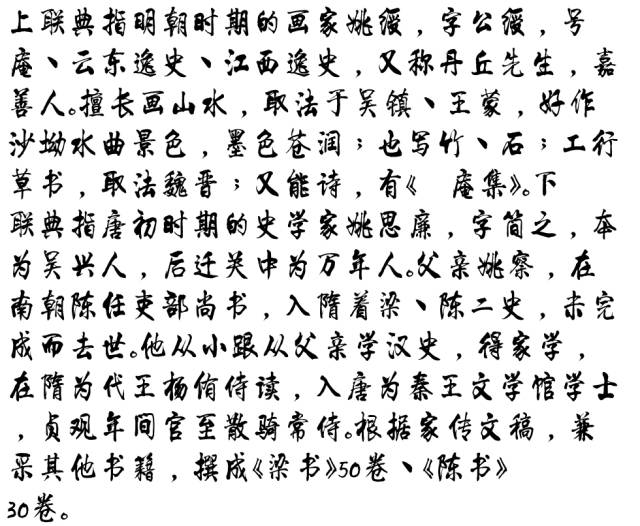 上联典指明朝时期的画家姚绶，字公绶，号
庵、云东逸史、江西逸史，又称丹丘先生，嘉
善人。擅长画山水，取法于吴镇、王蒙，好作
沙坳水曲景色，墨色苍润；也写竹、石；工行
草书，取法魏晋；又能诗，有《　庵集》。下
联典指唐初时期的史学家姚思廉，字简之，本
为吴兴人，后迁关中为万年人。父亲姚察，在
南朝陈任吏部尚书，入隋着梁、陈二史，未完
成而去世。他从小跟从父亲学汉史，得家学，
在隋为代王杨侑侍读，入唐为秦王文学馆学士
，贞观年间官至散骑常侍。根据家传文稿，兼
采其他书籍，撰成《梁书》50卷、《陈书》
30卷。